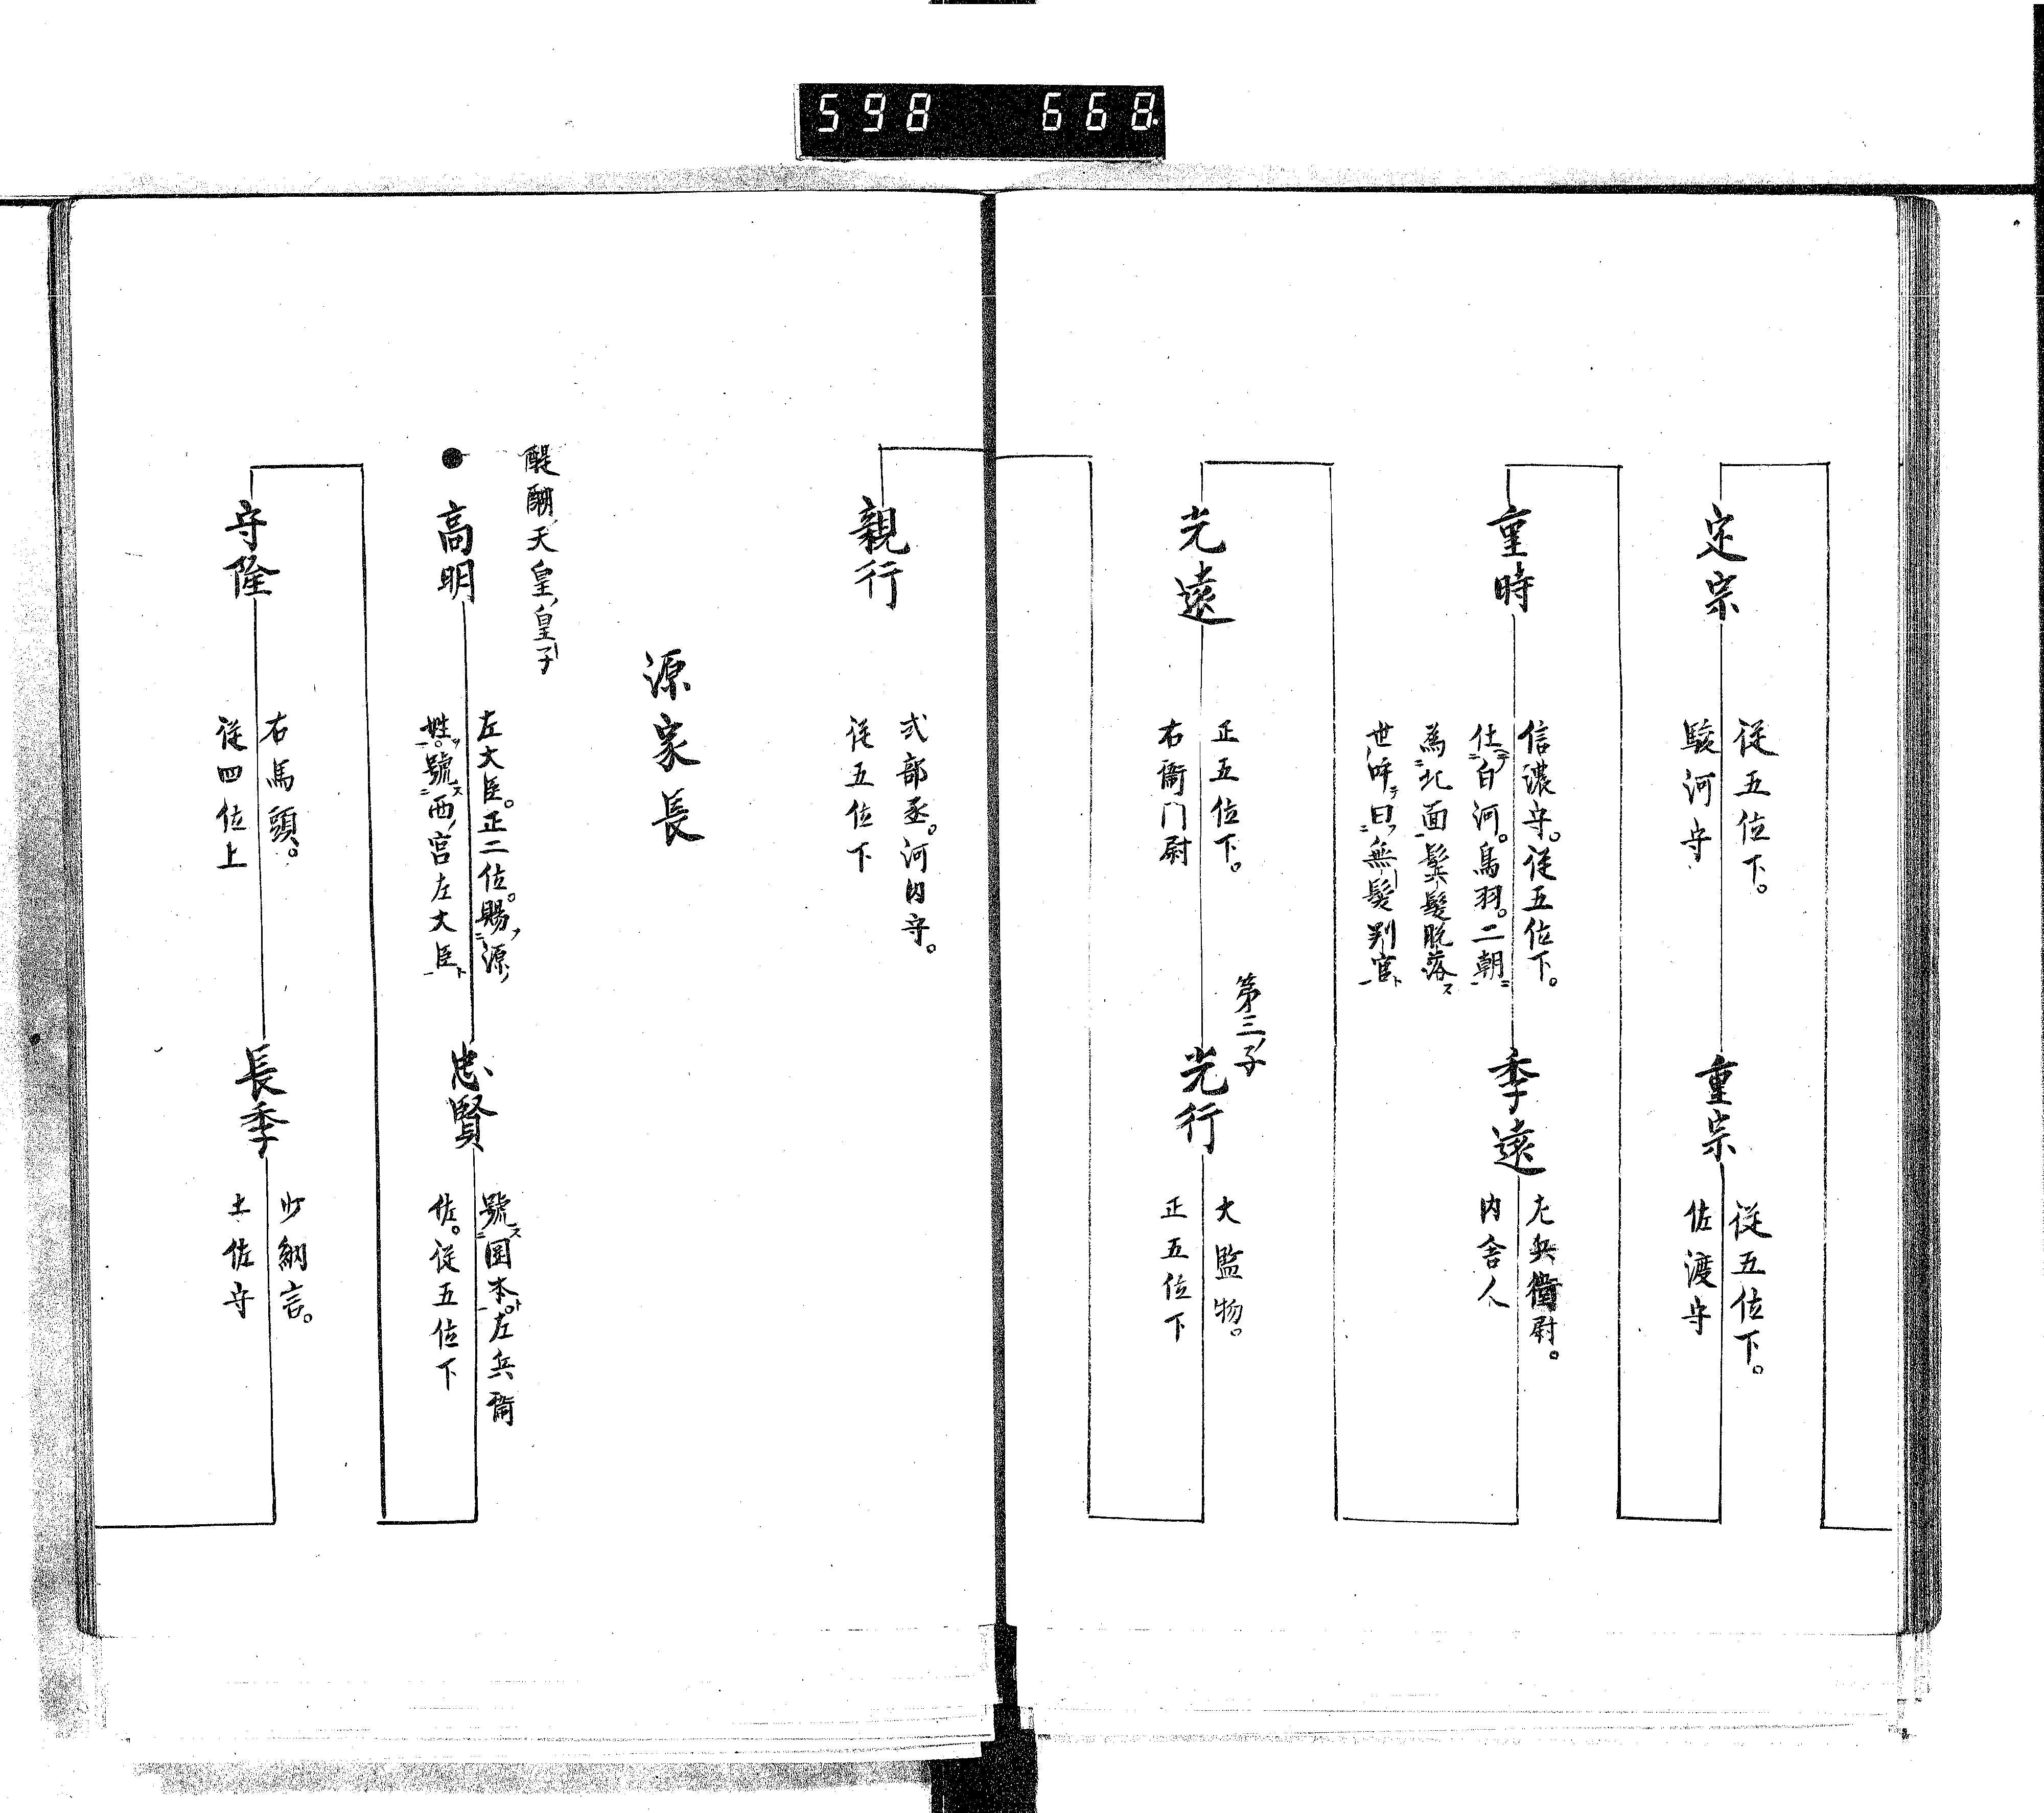 598 668.
定宗
従五位下。
駿河守
重宗
従五位下。
佐渡守
重時
信濃守。従五位下。
仕ニテ白河。鳥羽。二朝ニ
為ニ北面鬢髮脱落ス
世呼テ曰ニ無髮判官ト
季遠
左兵衛尉。
内舎人
光遠
正五位下。
右衛门尉
第三ノ子
光行
大監物。
正五位下
親行
式部丞。河内守。
従五位下
源家長
醍醐ノ天皇ノ皇子
高明
左大臣。正二位。賜フ源ノ
姓ヲ。號ス西ノ宮左大臣ト
忠賢
號ス岡本ト。左兵衛
佐。従五位下
守隆
右馬頭。
従四位上
長季
少納言。
土佐守